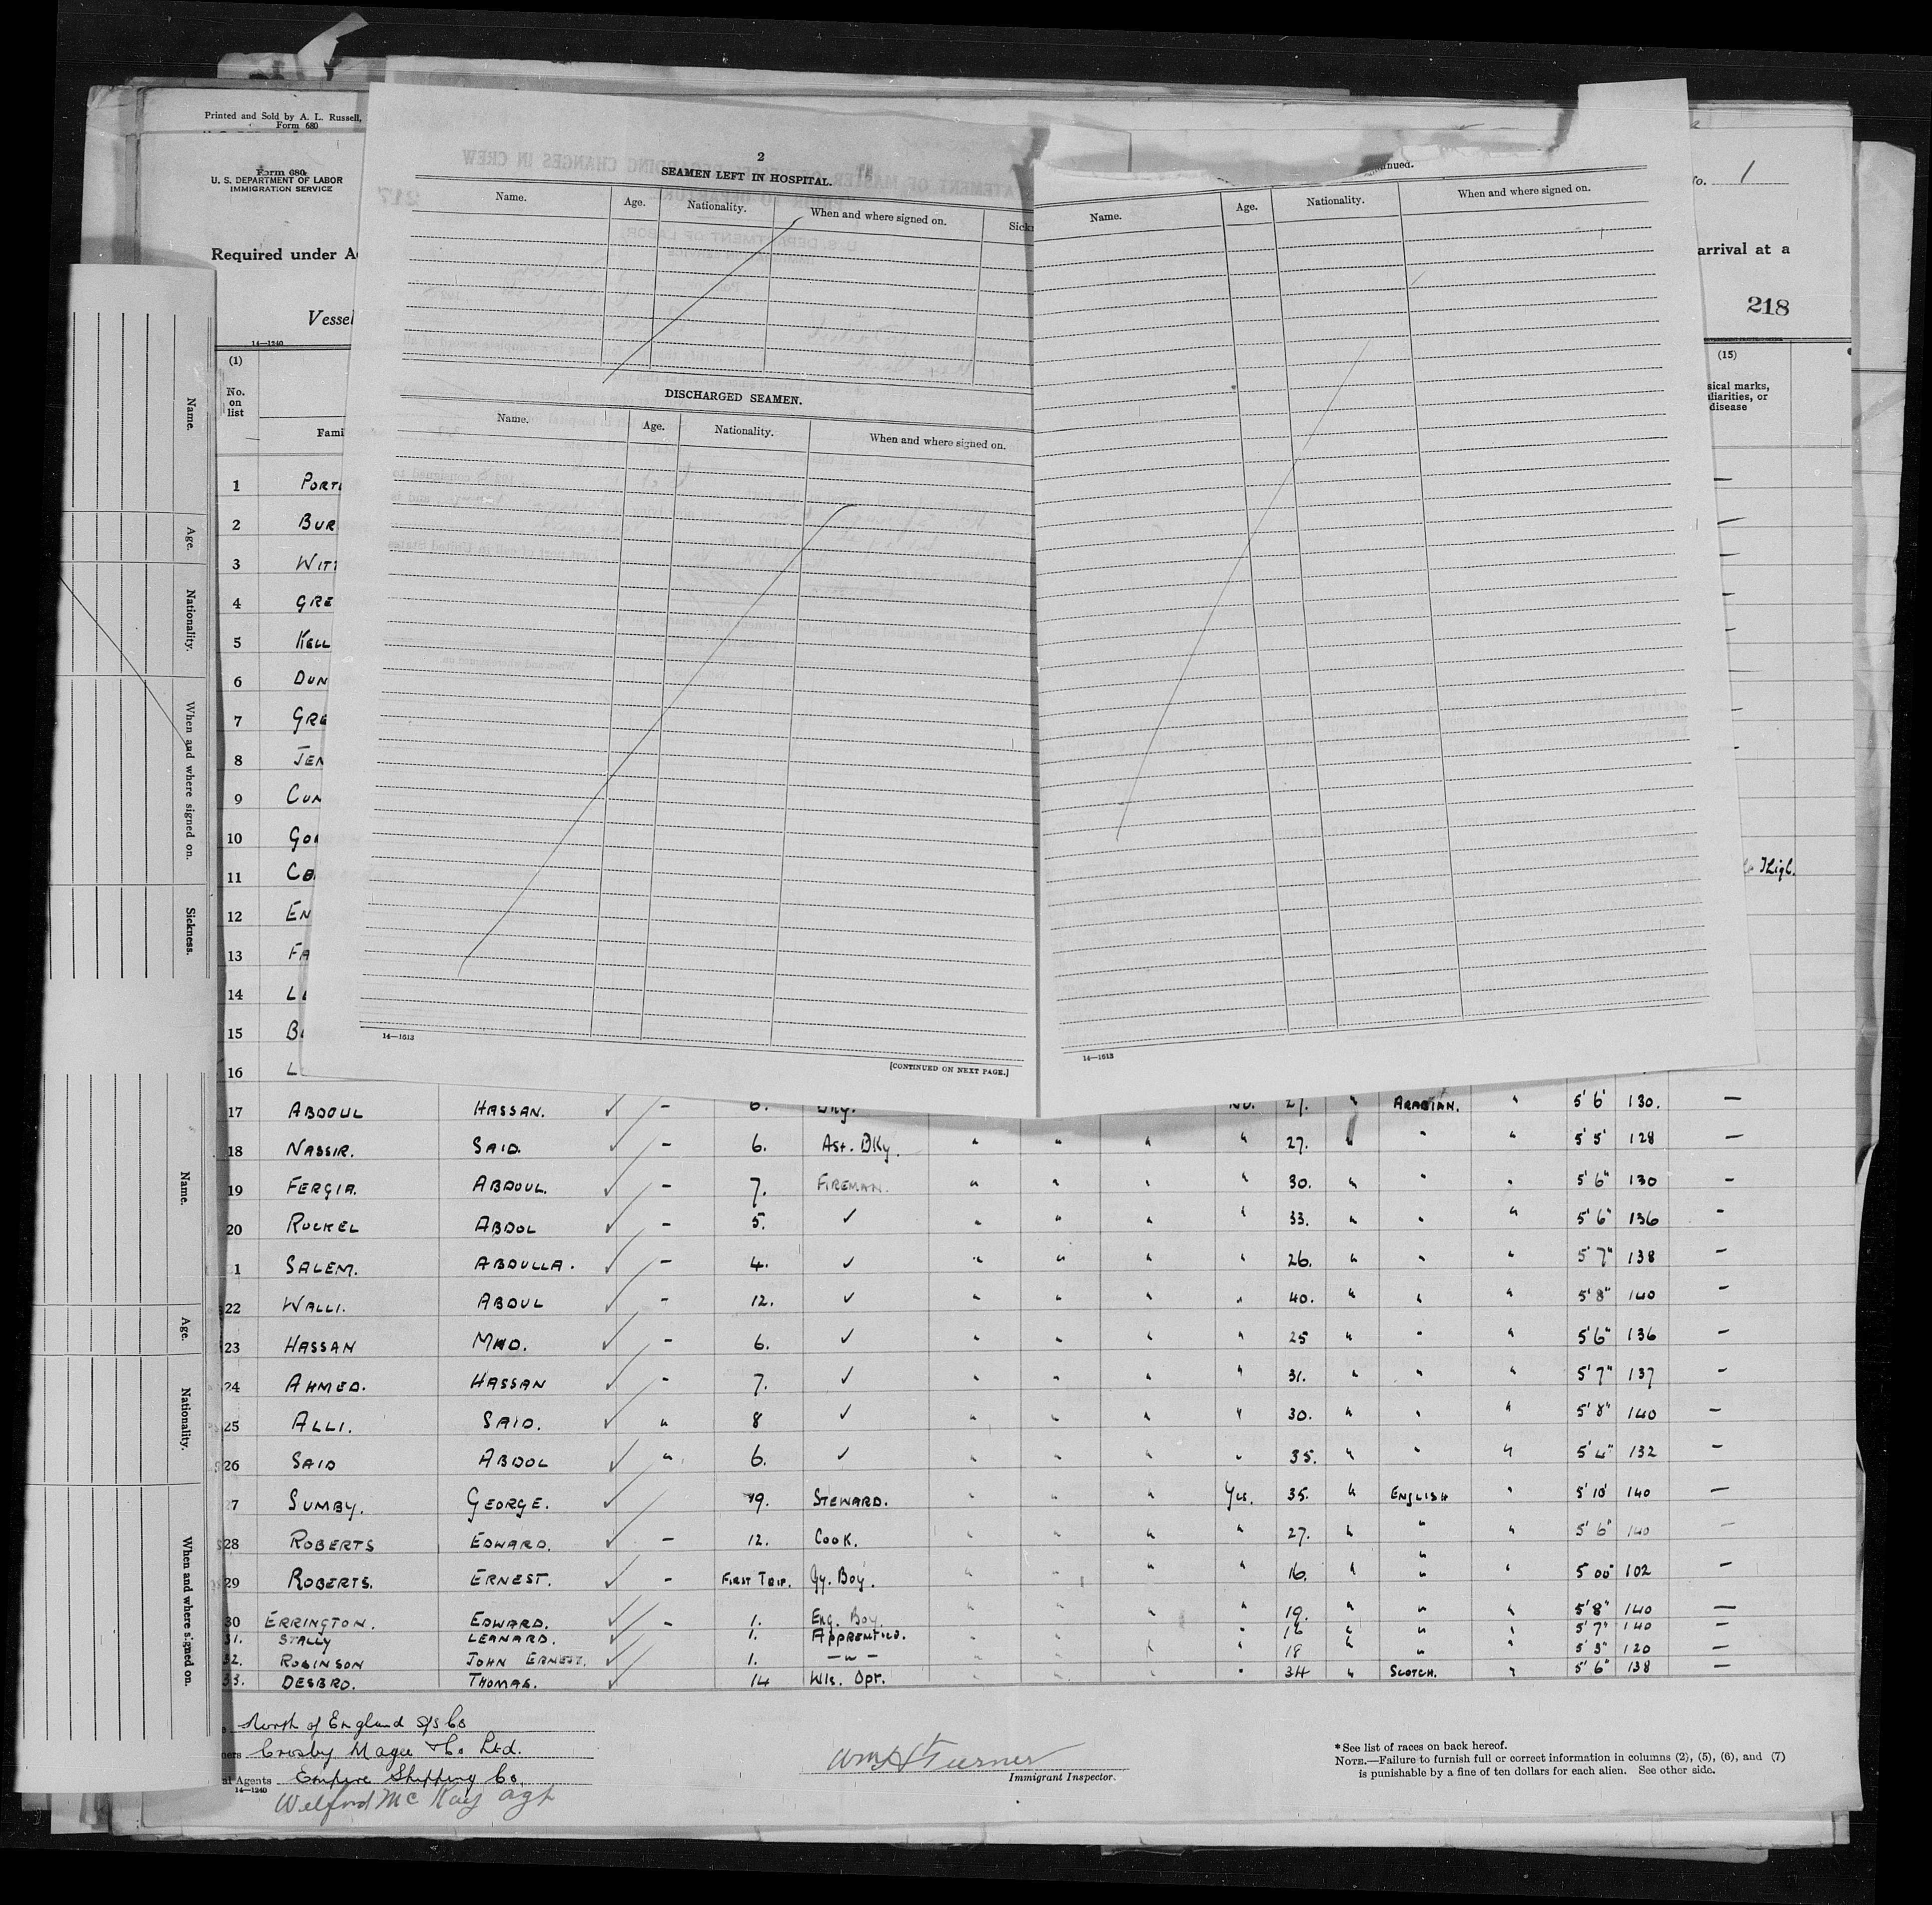 Printed and Sold by A. L. Russell,
Form 680
Form 680
U. S. DEPARTMENT OF LABOR
IMMIGRATION SERVICE
Required under
Vessel
14—1240
(1)
No. on list
1 PORT
2 BUR
3 WIT
4 GRE
5 KELL
6 DUN
7 GRE
8 JEN
9 CUN
10 GO
11
12 EN
13 FA
14
15
16
2
SEAMEN LEFT IN HOSPITAL.
Name. Age. Nationality. When and where signed on.
DISCHARGED SEAMEN.
Name. Age. Nationality. When and where signed on.
14—1613
[CONTINUED ON NEXT PAGE.]
Name. Age. Nationality. When and where signed on.
14—1613
1
arrival at a
218
(15)
disease
Name. Age. Nationality. When and where signed on. Sickness.
Name. Age. Nationality. When and where signed on.
17 ABDOUL HASSAN. ✓ — 6. 27. " ARABIAN. " 5' 6" 130. —
18 NASSIR. SAID. ✓ — 6. Ast. DKy. " " " " 27. " " " 5' 5" 128 —
19 FERGIA. ABDOUL. ✓ — 7. FIREMAN. " " " " 30. " " " 5' 6" 130 —
20 RUCKEL ABDOL ✓ — 5. ✓ " " " " 33. " " " 5' 6" 136 —
1 SALEM. ABDULLA. ✓ — 4. ✓ " " " " 26. " " " 5' 7" 138 —
22 WALLI. ABDUL ✓ — 12. ✓ " " " " 40. " " " 5' 8" 140 —
23 HASSAN MHD. ✓ — 6. ✓ " " " " 25 " " " 5' 6" 136 —
24 AHMED. HASSAN ✓ — 7. ✓ " " " " 31. " " " 5' 7" 137 —
25 ALLI. SAID. ✓ " 8 ✓ " " " " 30. " " " 5' 8" 140 —
26 SAID ABDOL ✓ " 6. ✓ " " " " 35. " " " 5' 4" 132 —
27 SUMBY. GEORGE. ✓ 19. STEWARD. " " " Yes. 35. " ENGLISH " 5' 10" 140 —
28 ROBERTS EDWARD. ✓ — 12. COOK. " " " " 27. " " " 5' 6" 140 —
29 ROBERTS. ERNEST. ✓ — FIRST TRIP. Gy. Boy. " " " " 16. " " 5 00 102 —
30 ERRINGTON. EDWARD. ✓ — 1. Eng. Boy " " " " 19. " " " 5' 8" 140 —
31. STALLY LEANARD. ✓ 1. APPRENTICE. " " " 16 " " " 5' 7" 140 —
32. ROBINSON JOHN ERNEST. ✓ 1. —"— " " " " 18 " " " 5' 3" 120 —
33. DESBRO. THOMAS. ✓ 14 Wls. Opr. " " " " 34 " SCOTCH. " 5' 6" 138 —
North of England S/S Co
Crosby Magee & Co. Ltd.
Agents Empire Shipping Co.
14—1240
Welford McKay agt
Wm H Turner
Immigrant Inspector.
*See list of races on back hereof.
NOTE.—Failure to furnish full or correct information in columns (2), (5), (6), and (7)
is punishable by a fine of ten dollars for each alien. See other side.